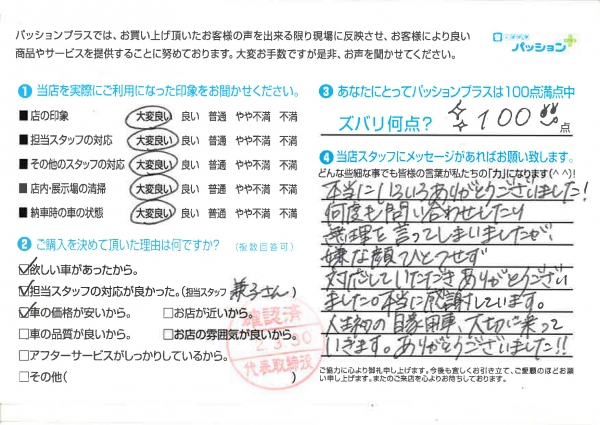 パッションプラスでは、お買い上げ頂いたお客様の声を出来る限り現場に反映させ、お客様により良い
商品やサービスを提供することに努めております。大変お手数ですが是非、お声を聞かせてください。
パッション
1 当店を実際にご利用になった印象をお聞かせください。
■店の印象 大変良い 良い 普通 やや不満 不満
■担当スタッフの対応 大変良い 良い 普通 やや不満 不満
■その他のスタッフの対応 大変良い 良い 普通 やや不満 不満
■店内・展示場の清掃 大変良い 良い 普通 やや不満 不満
■納車時の車の状態 大変良い 良い 普通 やや不満 不満
2 ご購入を決めて頂いた理由は何ですか? (複数回答可)
☑欲しい車があったから。
☑担当スタッフの対応が良かった。(担当スタッフ 兼子さん)
☑車の価格が安いから。 □お店が近いから。
□車の品質が良いから。 □お店の雰囲気が良いから。
□アフターサービスがしっかりしているから。
□その他( )
確認済
2.3.30
代表取締役
3 あなたにとってパッションプラスは100点満点中
ズバリ何点? 100点
4 当店スタッフにメッセージがあればお願い致します。
どんな些細な事でも皆様の言葉が私たちの「力」になります(^^)!
本当にいろいろありがとうございました!
何度も問い合わせしたり
無理を言ってしまいましたが、
嫌な顔ひとつせず
対応していただきありがとうござい
ました。本当に感謝しています。
人生初の自家用車、大切に乗って
いきます。ありがとうございました!!
ご協力に心より御礼申し上げます。今後も宜しくお引き立て、ご愛顧のほどお願
い申し上げます。またのご来店を心よりお待ちしております。